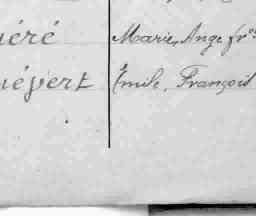 uéré Marie, Ange fr
uépert Émile, François